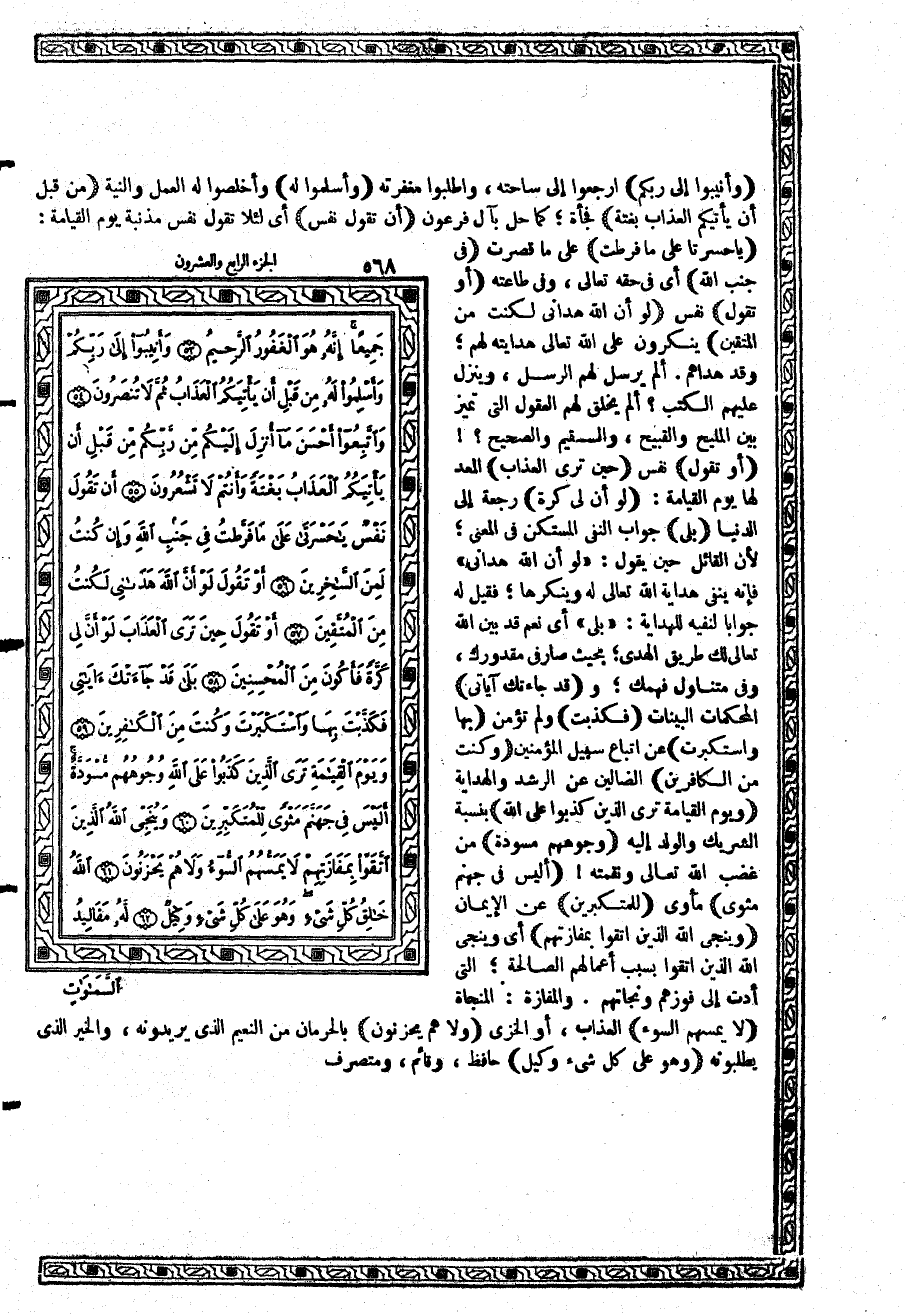 (وأنيبوا إلى ربكم) ارجعوا إلى ساحته ، واطلبوا مغفرته (وأسلموا له) وأخلصوا له العمل والنية (من قبل
أن يأتيكم العذاب بغتة) فجأة ؛ كما حل بآل فرعون (أن تقول نفس) أى لئلا تقول نفس مذنبة يوم القيامة :
(ياحسرتا على ما فرطت) على ما قصرت (فى
جنب الله) أى فى حقه تعالى ، وفى طاعته (أو
تقول) نفس (لو أن الله هدانى لكنت من
المتقين) ينكرون على الله تعالى هدايته لهم ؛
وقد هداهم . ألم يرسل لهم الرسل ، وينزل
عليهم الكتب ؟ ألم يخلق لهم العقول التى تميز
بين المليح والقبيح ، والسقيم والصحيح ؟ !
(أو تقول) نفس (حين ترى العذاب) المعد
لها يوم القيامة : (لو أن لى كرة) رجعة إلى
الدنيا (بلى) جواب النفى المستكن فى المعنى ؛
لأن القائل حين يقول : «لو أن الله هدانى»
فإنه ينفى هداية الله تعالى له وينكرها ؛ فقيل له
جوابا لنفيه للهداية : «بلى» أى نعم قد بين الله
تعالى لك طريق الهدى؛ بحيث صار فى مقدورك ،
وفى متناول فهمك ؛ و (قد جاءتك آياتى)
المحكمات البينات (فكذبت) ولم تؤمن (بها
واستكبرت) عن اتباع سبيل المؤمنين (وكنت
من الكافرين) الضالين عن الرشد والهداية
(ويوم القيامة ترى الذين كذبوا على الله) بنسبة
الشريك والولد إليه (وجوههم مسودة) من
غضب الله تعالى ونقمته ! (أليس فى جهنم
مثوى) مأوى (للمتكبرين) عن الإيمان
(وينجى الله الذين اتقوا بمفازتهم) أى وينجى
الله الذين اتقوا بسبب أعمالهم الصالحة ؛ التى
أدت إلى فوزهم ونجاتهم . والمفازة : المنجاة
(لا يمسهم السوء) العذاب ، أو الخزى (ولا هم يحزنون) بالحرمان من النعيم الذى يريدونه ، والخير الذى
يطلبونه (وهو على كل شىء وكيل) حافظ ، وقائم ، ومتصرف
٥٦٨ الجزء الرابع والعشرون
جَمِيعًا إِنَّهُۥ هُوَ ٱلْغَفُورُ ٱلرَّحِيمُ ۝٥٣ وَأَنِيبُوٓا۟ إِلَىٰ رَبِّكُمْ
وَأَسْلِمُوا۟ لَهُۥ مِن قَبْلِ أَن يَأْتِيَكُمُ ٱلْعَذَابُ ثُمَّ لَا تُنصَرُونَ ۝٥٤
وَٱتَّبِعُوٓا۟ أَحْسَنَ مَآ أُنزِلَ إِلَيْكُم مِّن رَّبِّكُم مِّن قَبْلِ أَن
يَأْتِيَكُمُ ٱلْعَذَابُ بَغْتَةً وَأَنتُمْ لَا تَشْعُرُونَ ۝٥٥ أَن تَقُولَ
نَفْسٌ يَـٰحَسْرَتَىٰ عَلَىٰ مَا فَرَّطتُ فِى جَنۢبِ ٱللَّهِ وَإِن كُنتُ
لَمِنَ ٱلسَّـٰخِرِينَ ۝٥٦ أَوْ تَقُولَ لَوْ أَنَّ ٱللَّهَ هَدَىٰنِى لَكُنتُ
مِنَ ٱلْمُتَّقِينَ ۝٥٧ أَوْ تَقُولَ حِينَ تَرَى ٱلْعَذَابَ لَوْ أَنَّ لِى
كَرَّةً فَأَكُونَ مِنَ ٱلْمُحْسِنِينَ ۝٥٨ بَلَىٰ قَدْ جَآءَتْكَ ءَايَـٰتِى
فَكَذَّبْتَ بِهَا وَٱسْتَكْبَرْتَ وَكُنتَ مِنَ ٱلْكَـٰفِرِينَ ۝٥٩
وَيَوْمَ ٱلْقِيَـٰمَةِ تَرَى ٱلَّذِينَ كَذَبُوا۟ عَلَى ٱللَّهِ وُجُوهُهُم مُّسْوَدَّةٌ
أَلَيْسَ فِى جَهَنَّمَ مَثْوًى لِّلْمُتَكَبِّرِينَ ۝٦٠ وَيُنَجِّى ٱللَّهُ ٱلَّذِينَ
ٱتَّقَوْا۟ بِمَفَازَتِهِمْ لَا يَمَسُّهُمُ ٱلسُّوٓءُ وَلَا هُمْ يَحْزَنُونَ ۝٦١ ٱللَّهُ
خَـٰلِقُ كُلِّ شَىْءٍ وَهُوَ عَلَىٰ كُلِّ شَىْءٍ وَكِيلٌ ۝٦٢ لَّهُۥ مَقَالِيدُ
ٱلسَّمَـٰوَٰتِ